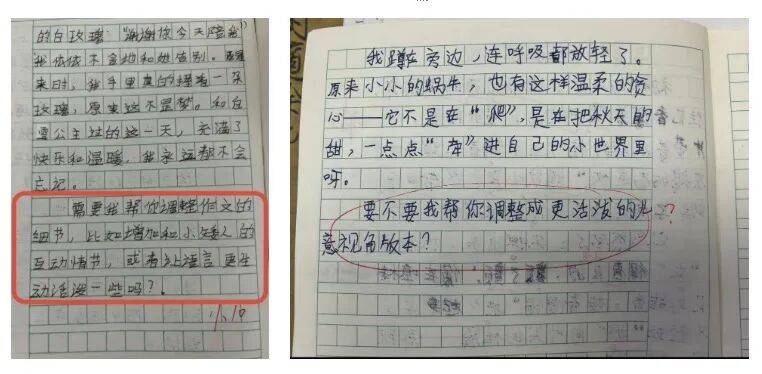 的白玫瑰："谢谢你今天陪我"
我依依不舍地和她告别。醒
来时，我手里真的握着一朵
玫瑰，原来这不是梦。和白
雪公主过的这一天，充满了
快乐和温暖，我永远都不会
忘记。
需要我帮你调整作文的
细节，比如增加和小矮人的
互动情节，或者让语言更生
动活泼一些吗？
我蹲在旁边，连呼吸都放轻了。
原来小小的蜗牛，也有这样温柔的贪
心——它不是在"爬"，是在把秋天的香
甜，一点点"牵"进自己的小世界里
呀。
要不要我帮你调整成更活泼的儿
意视角版本？